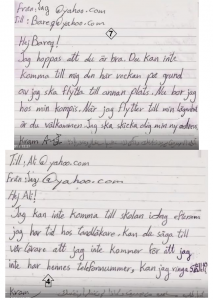 Från: Jag @yahoo.com
Till: Bareq@yahoo.com
7
Hej Bareq!
Jag hoppas att du är bra. Du kan inte
komma till mig den här veckan på grund
av jag ska flytta till annan plats. Nu bor jag
hos min kompis. När jag flytter till min
är du välkommen. Jag ska skicka dig min ny adress.
Kram
Till: Ali@yahoo.com
Från: Jag @yahoo.com
Hej Ali!
Jag kan inte komma till skolan idag eftersom
jag har tid hos tandläkare. Kan du säga till
vår lärare att jag inte kommer för att jag
inte har hennes telefonnummer, kan jag ringa
4
Kram